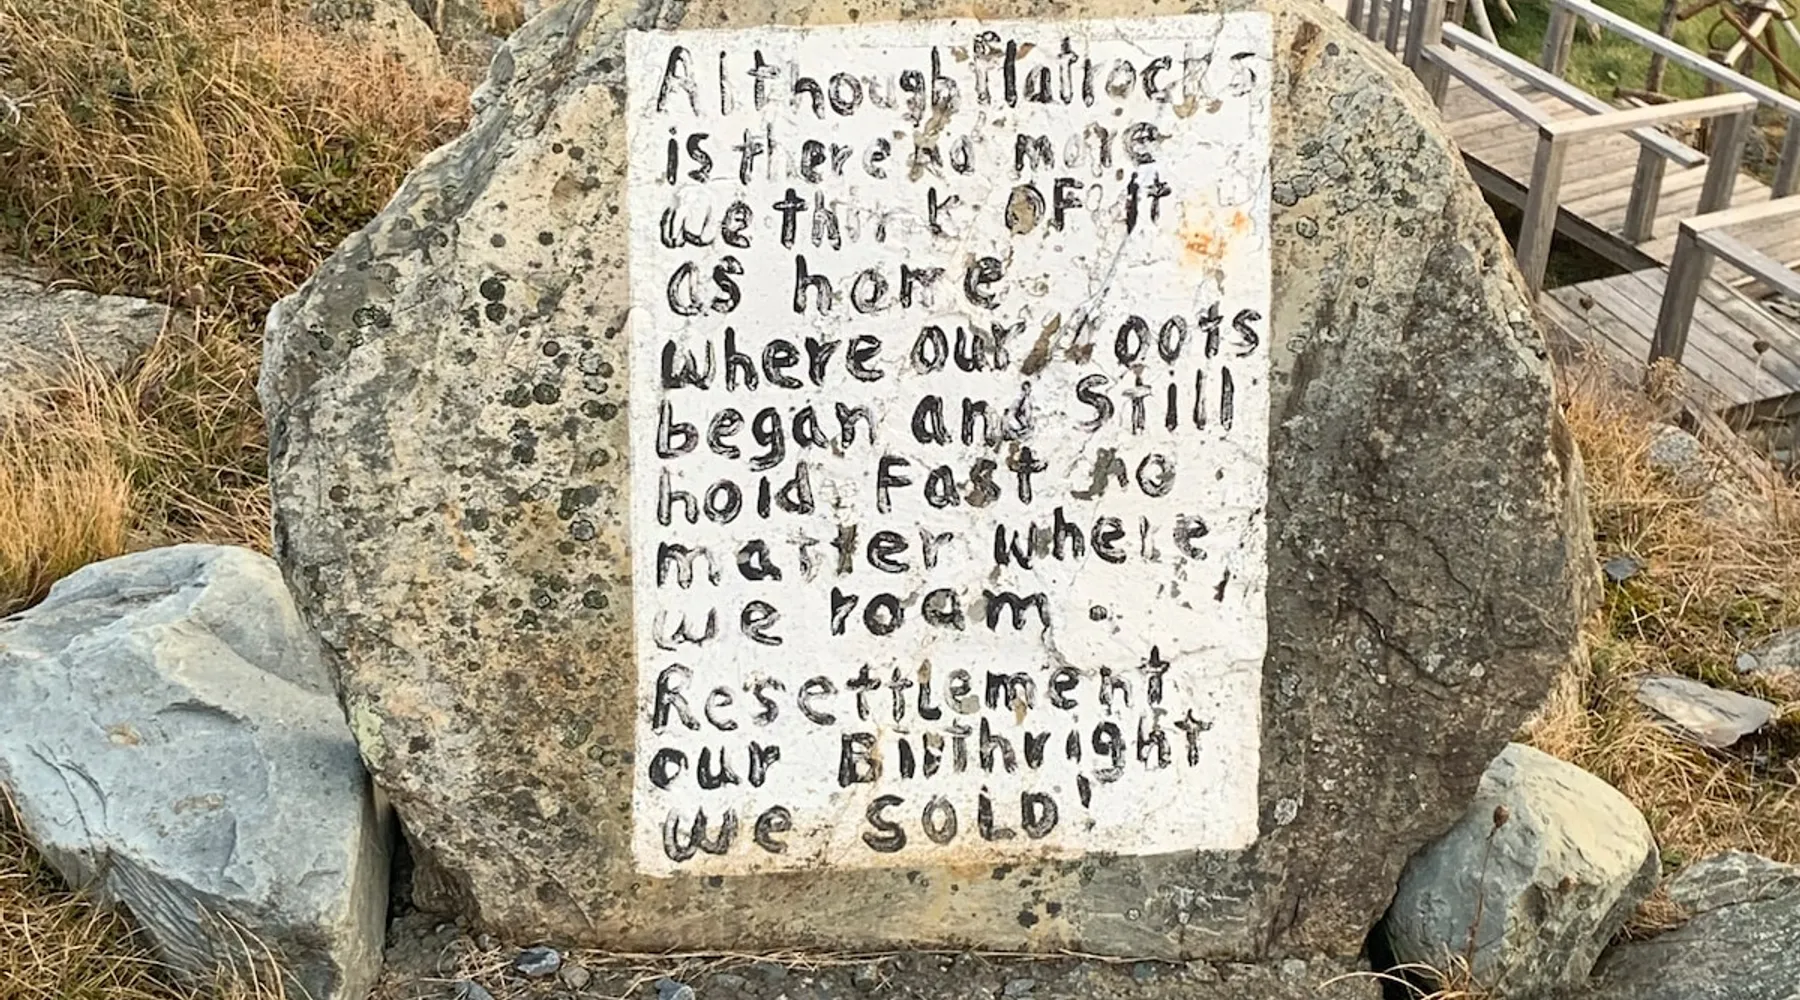 Although flatrocks
is there no more
we think OF it
as home
where our roots
began and Still
hold Fast no
matter where
we roam.
Resettlement
our Birthright
we SOLD!